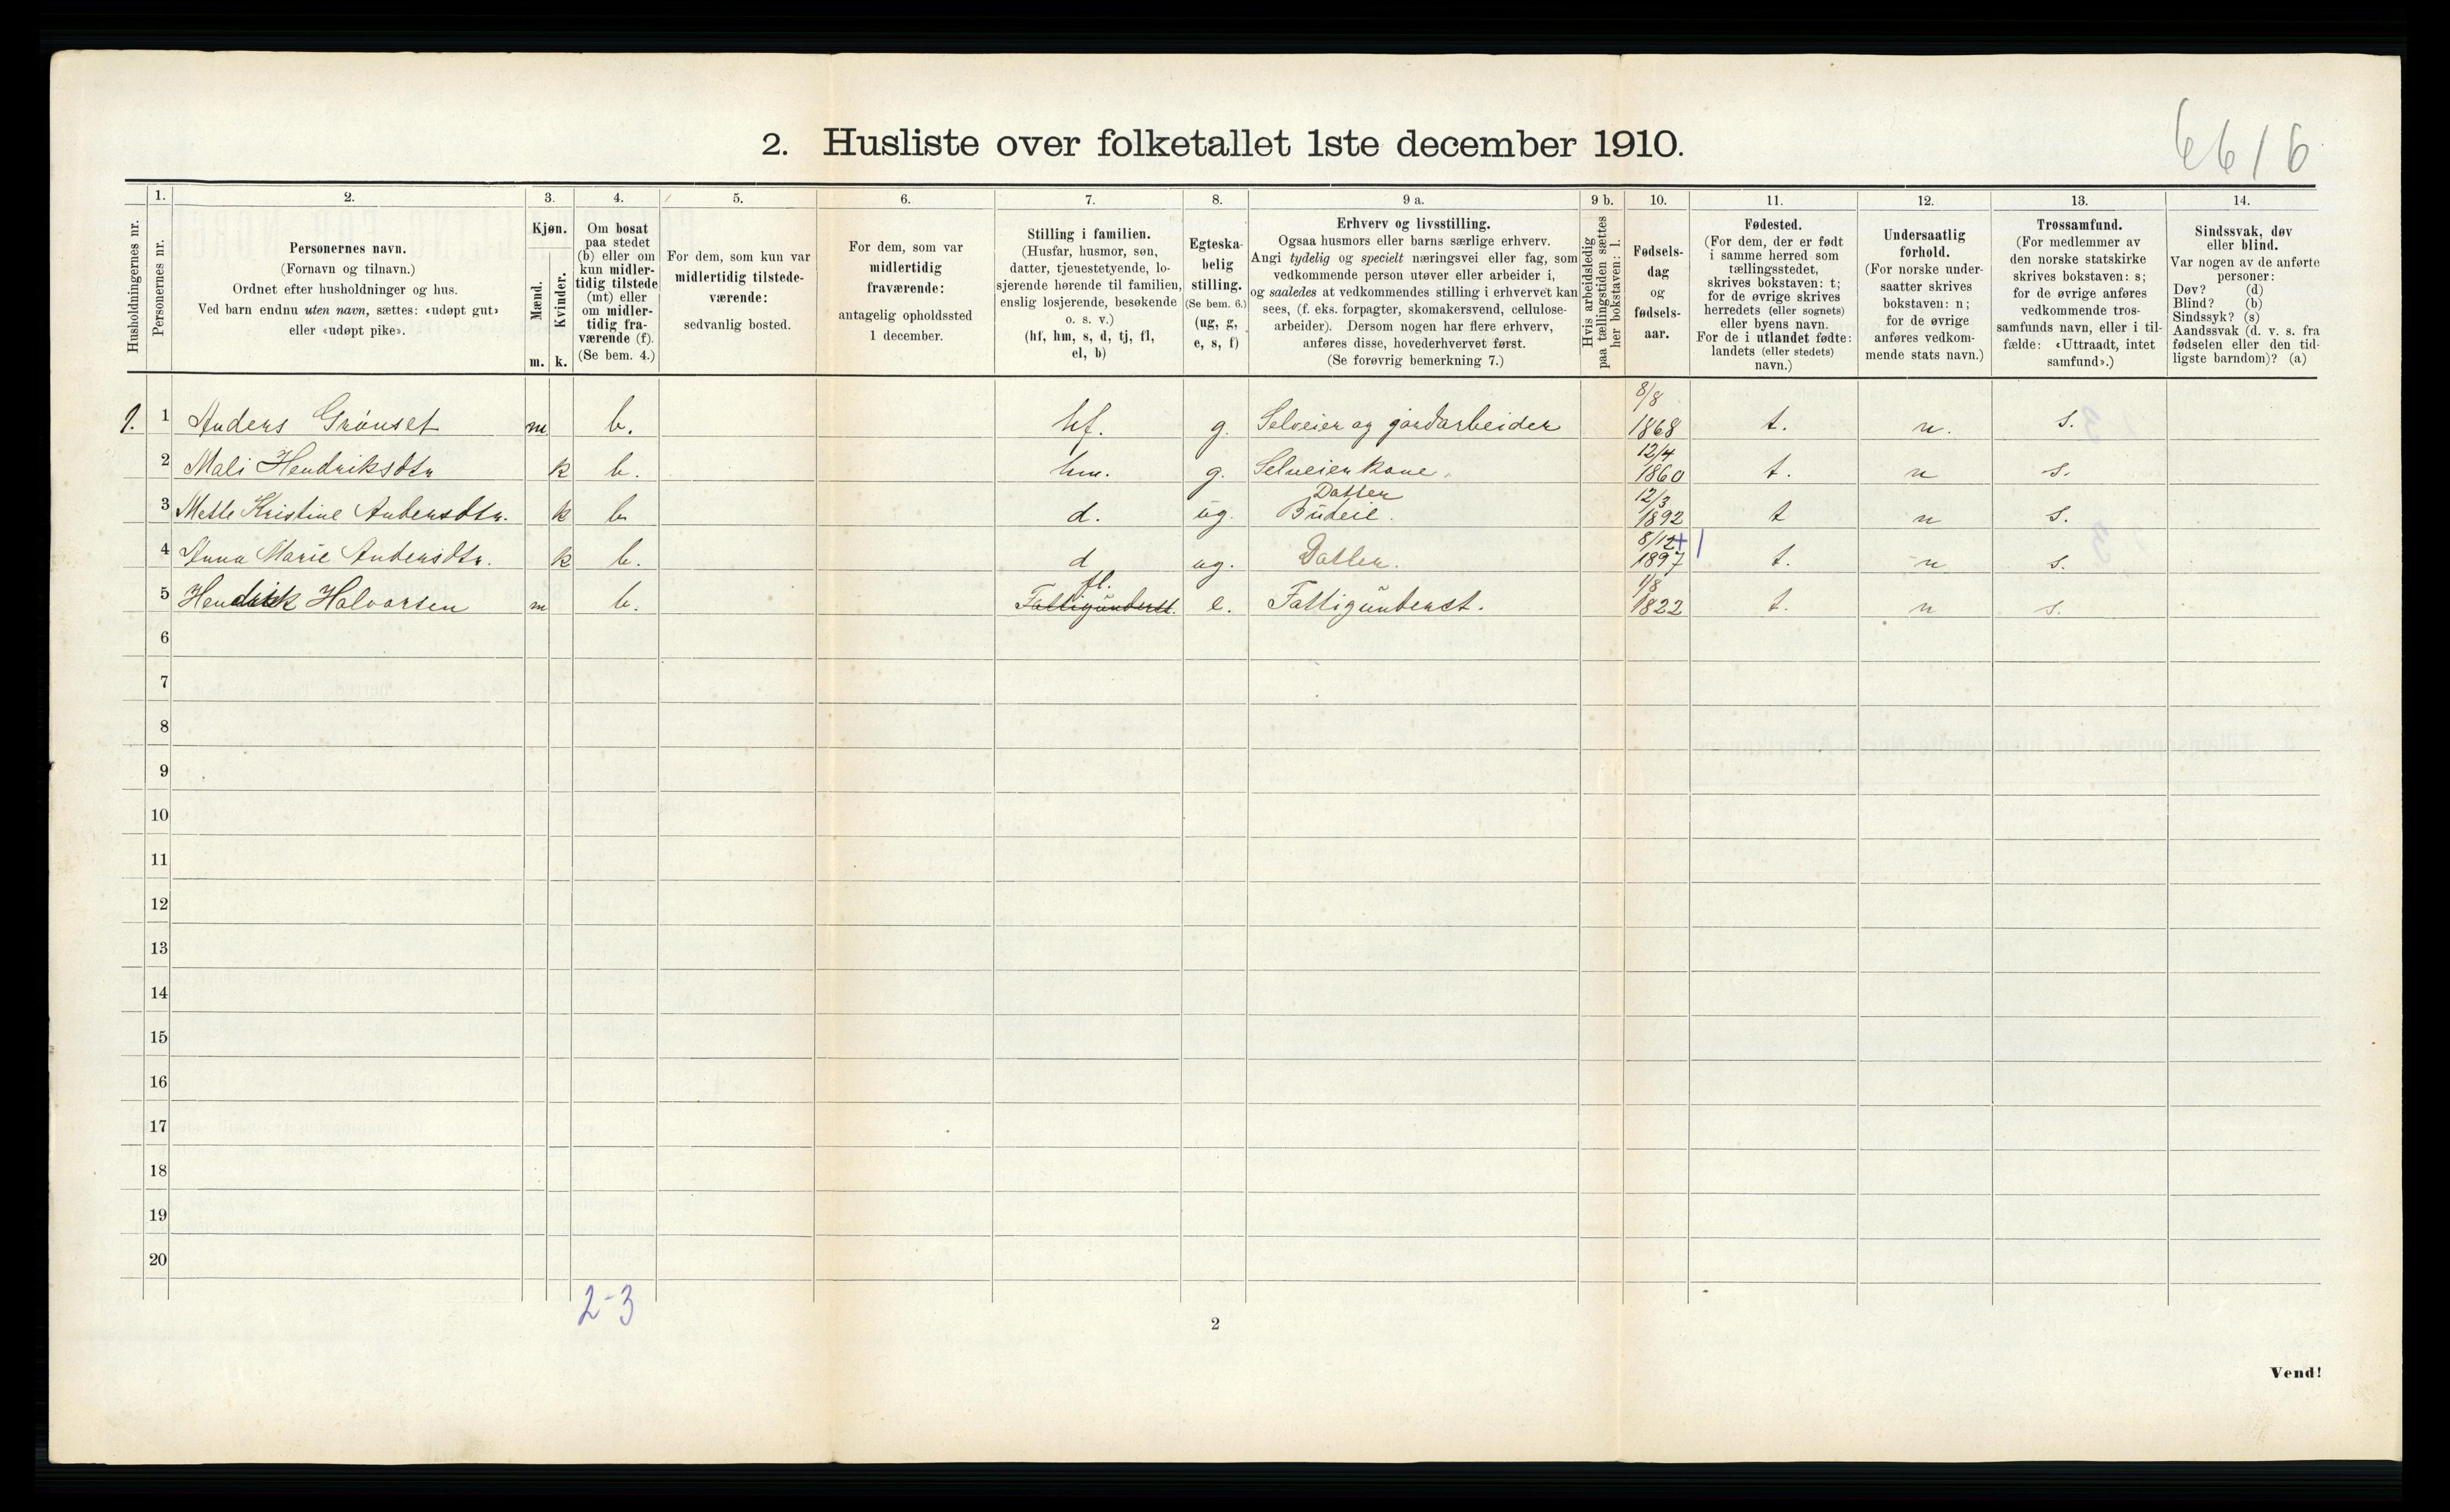 6616
2. Husliste over folketallet 1ste december 1910.
Husholdningernes nr.
1.
Personernes nr.
2.
Personernes navn.
(Fornavn og tilnavn.)
Ordnet efter husholdninger og hus.
Ved barn endnu uten navn, sættes: «udøpt gut»
eller «udøpt pike».
3.
Kjøn.
Mænd.
Kvinder.
m. k.
4.
Om bosat
paa stedet
(b) eller om
kun midler-
tidig tilstede
(mt) eller
om midler-
tidig fra-
værende (f).
(Se bem. 4.)
5.
For dem, som kun var
midlertidig tilstede-
værende:
sedvanlig bosted.
6.
For dem, som var
midlertidig
fraværende:
antagelig opholdssted
1 december.
7.
Stilling i familien.
(Husfar, husmor, søn,
datter, tjenestetyende, lo-
sjerende hørende til familien,
enslig losjerende, besøkende
o. s. v.)
(hf, hm, s, d, tj, fl,
el, b)
8.
Egteska-
belig
stilling.
(Se bem. 6.)
(ug, g,
e, s, f)
9 a.
Erhverv og livsstilling.
Ogsaa husmors eller barns særlige erhverv.
Angi tydelig og specielt næringsvei eller fag, som
vedkommende person utøver eller arbeider i,
og saaledes at vedkommendes stilling i erhvervet kan
sees, (f. eks. forpagter, skomakersvend, cellulose-
arbeider). Dersom nogen har flere erhverv,
anføres disse, hovederhvervet først.
(Se forøvrig bemerkning 7.)
9 b.
Hvis arbeidsledig
paa tællingstiden sættes
her bokstaven: l.
10.
Fødsels-
dag
og
fødsels-
aar.
11.
Fødested.
(For dem, der er født
i samme herred som
tællingsstedet,
skrives bokstaven: t;
for de øvrige skrives
herredets (eller sognets)
eller byens navn.
For de i utlandet fødte:
landets (eller stedets)
navn.)
12.
Undersaatlig
forhold.
(For norske under-
saatter skrives
bokstaven: n;
for de øvrige
anføres vedkom-
mende stats navn.)
13.
Trossamfund.
(For medlemmer av
den norske statskirke
skrives bokstaven: s;
for de øvrige anføres
vedkommende tros-
samfunds navn, eller i til-
fælde: «Uttraadt, intet
samfund».)
14.
Sindssvak, døv
eller blind.
Var nogen av de anførte
personer:
Døv? (d)
Blind? (b)
Sindssyk? (s)
Aandssvak (d. v. s. fra
fødselen eller den tid-
ligste barndom)? (a)
1. 1 Anders Grönset m b. hf. g. Selveier og gårdarbeider 8/8 1868 t. n. s.
2 Mali Hendriksdtr k b. hm. g. Selveierkone. 12/4 1860 t. n s.
3 Mette Kristine Andersdtr. k b d. ug. Datter Budeie. 12/3 1892 t n s.
4 Anna Marie Andersdtr. k b. d ug. Datter. 8/12 + 1897 t. n s.
5 Hendrik Halvorsen m b. fl. Fattigunderst. e. Fattigunderst. 1/8 1822 t. n s.
6
7
8
9
10
11
12
13
14
15
16
17
18
19
20
2-3
2
Vend!